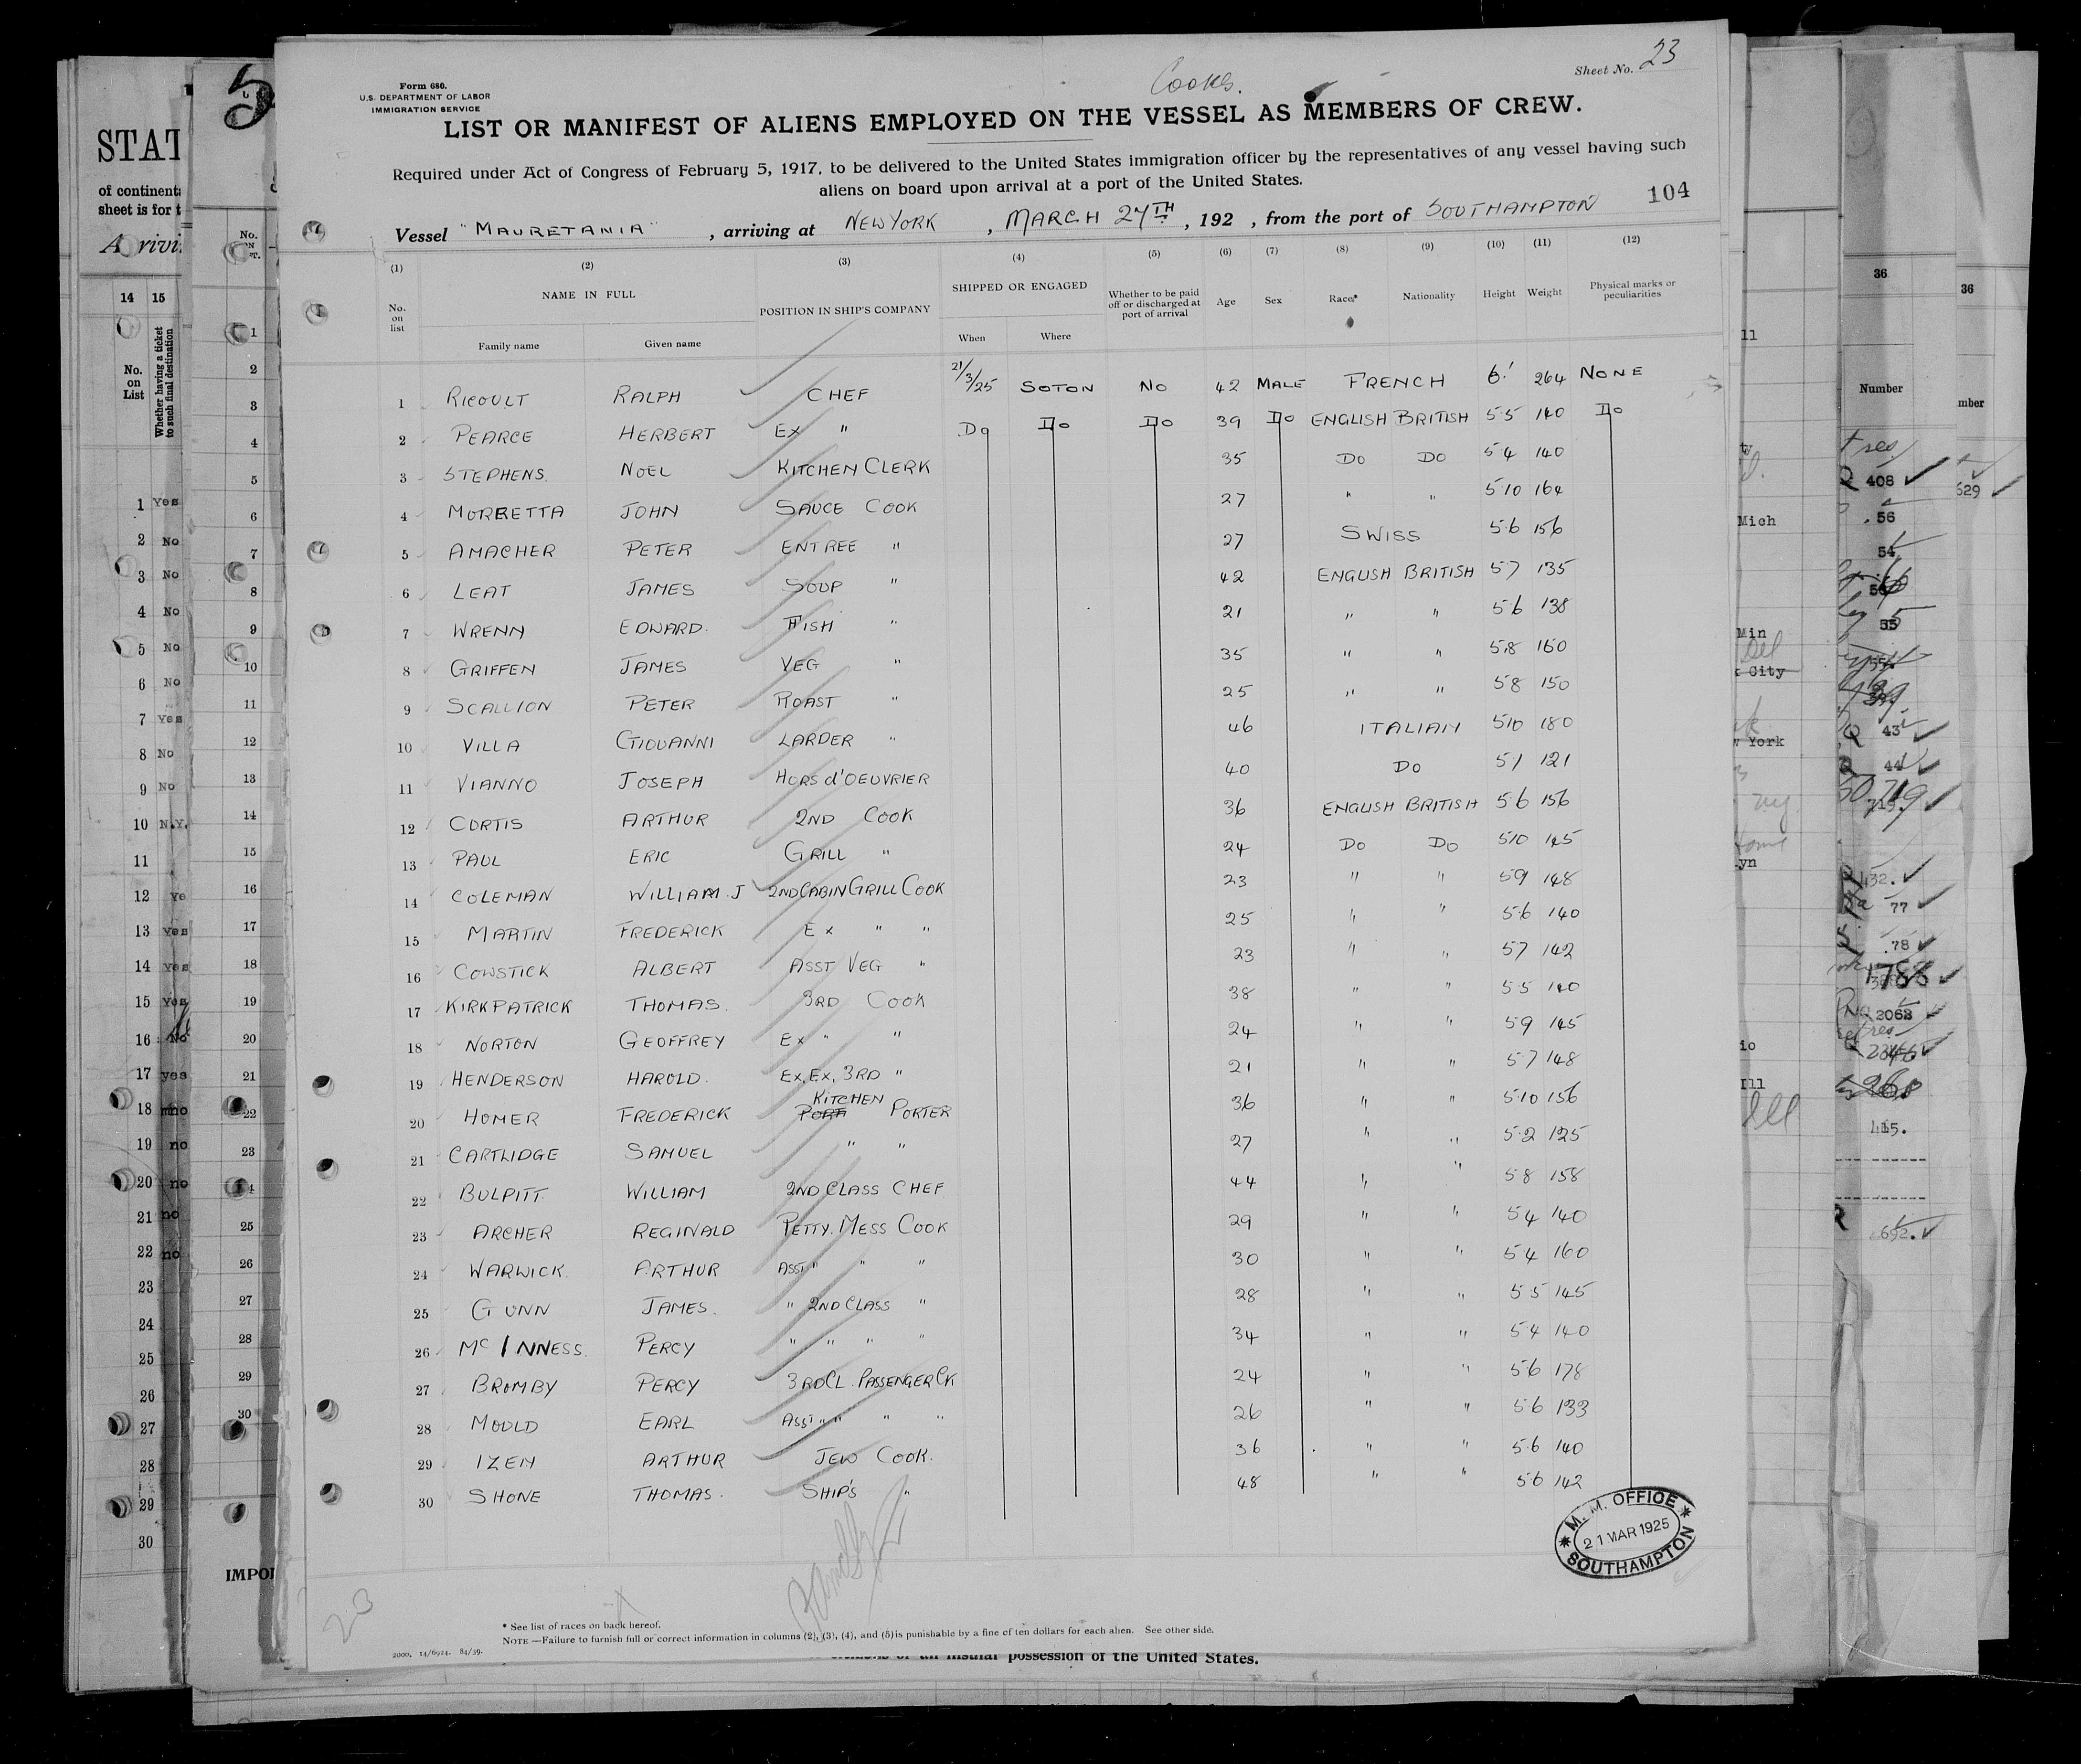 Cooks.
Sheet No. 23
Form 680.
U.S. DEPARTMENT OF LABOR
IMMIGRATION SERVICE
LIST OR MANIFEST OF ALIENS EMPLOYED ON THE VESSEL AS MEMBERS OF CREW.
Required under Act of Congress of February 5, 1917, to be delivered to the United States immigration officer by the representatives of any vessel having such
aliens on board upon arrival at a port of the United States.
104
Vessel "MAURETANIA", arriving at NEW YORK, MARCH 27TH, 192 , from the port of SOUTHAMPTON
(1) (2) (3) (4) (5) (6) (7) (8) (9) (10) (11) (12)
No. on list NAME IN FULL POSITION IN SHIP'S COMPANY SHIPPED OR ENGAGED Whether to be paid off or discharged at port of arrival Age Sex Race* Nationality Height Weight Physical marks or peculiarities
Family name Given name When Where
1 RICOULT RALPH CHEF 21/3/25 SOTON NO 42 MALE FRENCH 6' 264 NONE
2 PEARCE HERBERT EX " Do Do Do 39 Do ENGLISH BRITISH 5·5 140 Do
3 STEPHENS. NOEL KITCHEN CLERK 35 DO DO 5·4 140
4 MORRETTA JOHN SAUCE COOK 27 " " 5·10 164
5 AMACHER PETER ENTREE " 27 SWISS 5·6 156
6 LEAT JAMES SOUP " 42 ENGLISH BRITISH 5·7 135
7 WRENN EDWARD. FISH " 21 " " 5·6 138
8 GRIFFEN JAMES VEG " 35 " " 5·8 160
9 SCALLION PETER ROAST " 25 " " 5·8 150
10 VILLA GIOVANNI LARDER " 46 ITALIAN 5·10 180
11 VIANNO JOSEPH HORS d'OEUVRIER 40 DO 5·1 121
12 CURTIS ARTHUR 2ND COOK 36 ENGLISH BRITISH 5·6 156
13 PAUL ERIC GRILL " 24 DO DO 5·10 145
14 COLEMAN WILLIAM. J 2ND CABIN GRILL COOK 23 " " 5·9 148
15 MARTIN FREDERICK EX " " 25 " " 5·6 140
16 COWSTICK ALBERT ASST VEG " 23 " " 5·7 142
17 KIRKPATRICK THOMAS. 3RD COOK 38 " " 5·5 140
18 NORTON GEOFFREY EX " " 24 " " 5·9 145
19 HENDERSON HAROLD. EX. EX. 3RD " 21 " " 5·7 148
20 HOMER FREDERICK KITCHEN PORTER 36 " " 5·10 156
21 CARTLIDGE SAMUEL " " 27 " " 5·2 125
22 BULPITT. WILLIAM 2ND CLASS CHEF 44 " " 5·8 158
23 ARCHER REGINALD PETTY. MESS COOK 29 " " 5·4 140
24 WARWICK. ARTHUR ASST " " " 30 " " 5·4 160
25 GUNN JAMES. " 2ND CLASS " 28 " " 5·5 145
26 McINNESS. PERCY " " " " 34 " " 5·4 140
27 BROMBY PERCY 3RD CL. PASSENGER CK 24 " " 5·6 178
28 MOULD EARL ASST " " " " 26 " " 5·6 133
29 IZEN ARTHUR JEW COOK. 36 " " 5·6 140
30 SHONE THOMAS. SHIP'S " 48 " " 5·6 142
M. M. OFFICE
21 MAR 1925
SOUTHAMPTON
23
* See list of races on back hereof.
NOTE—Failure to furnish full or correct information in columns (2), (3), (4), and (5) is punishable by a fine of ten dollars for each alien. See other side.
2000. 14/6924. 84/39.
possession of the United States.
STAT
of continent
sheet is for t
Arrivi
14 15
No. on List
Whether having a ticket to such final destination
1 Yes
2 No
3 No
4 No
5 No
6 No
7 Yes
8 No
9 No
10 N.Y.
11
12 Ye
13 Yes
14 Yes
15 Yes
16 No
17 yes
18 no
19 no
20 no
21 no
22 no
23
24
25
26
27
28
29
30
5
1
2
3
4
5
6
7
8
9
10
11
12
13
14
15
16
17
18
19
20
21
22
23
25
26
27
28
29
30
IMPO
Mich
Min
City
York
Ill
36
36
Number
mber
408
629
56
54
43
44
719
132.
77
78
1788
2063
415.
652.